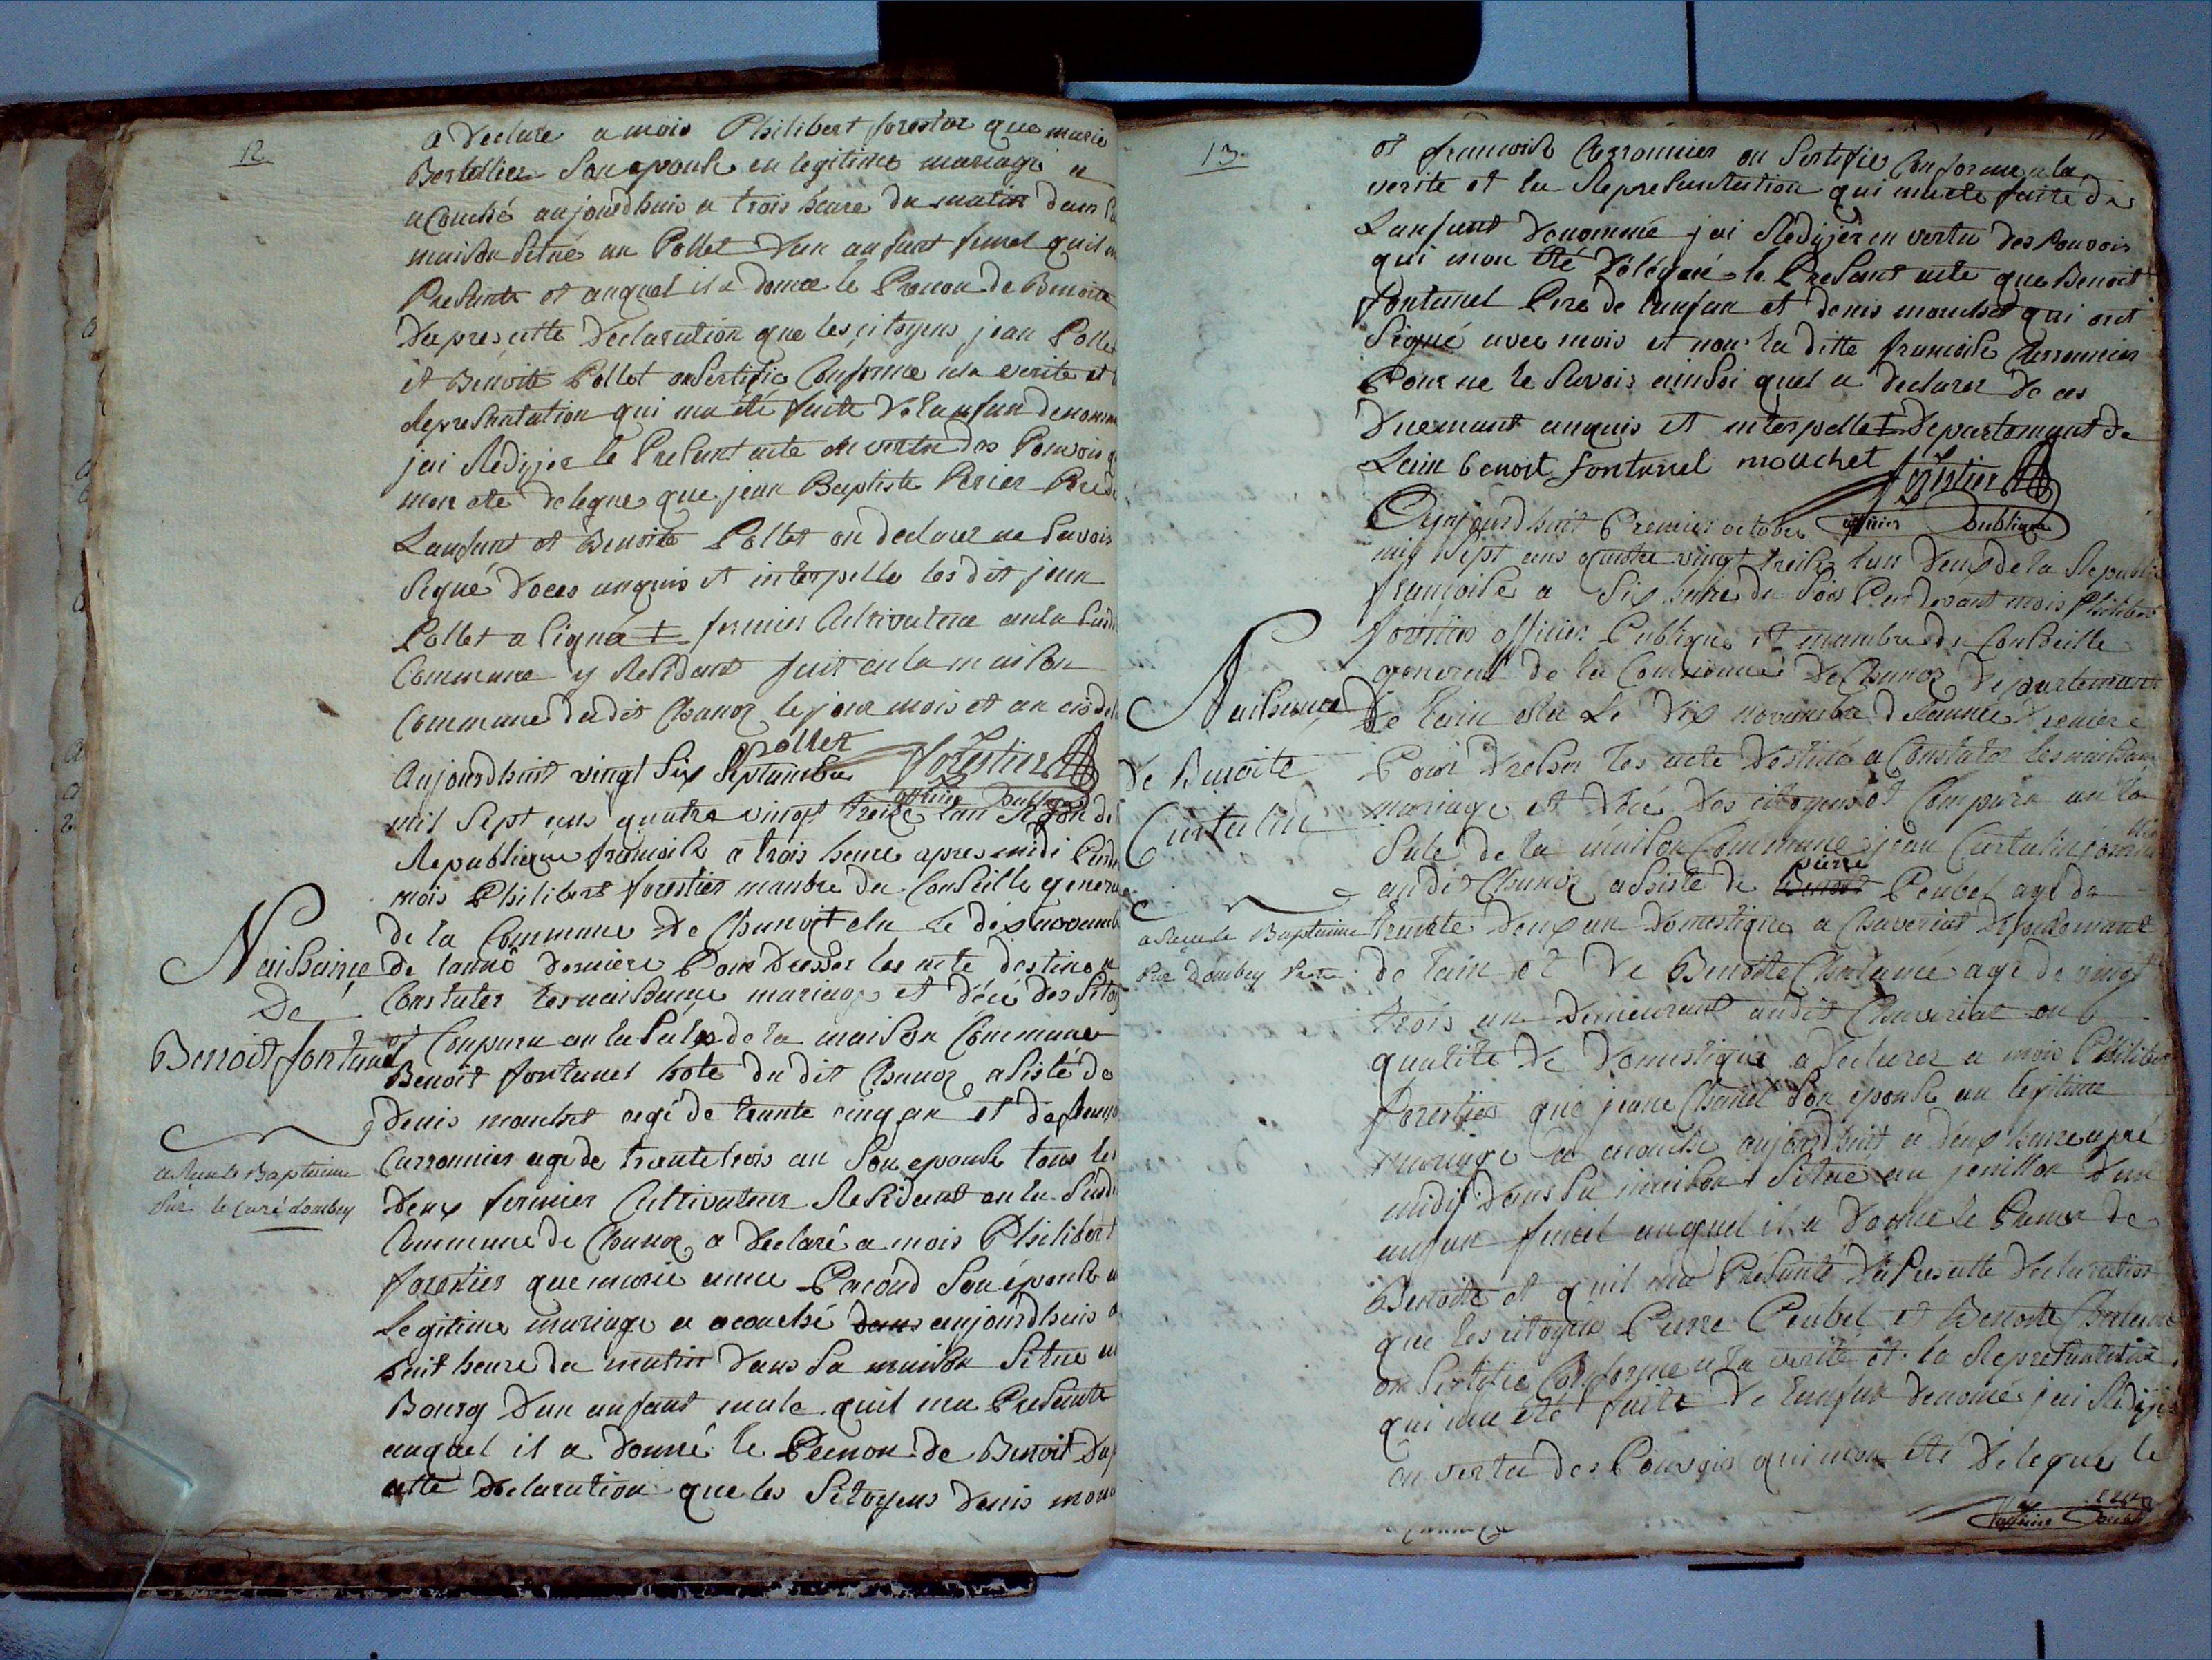 12
a Declare a mois Philibert forestier que marie
Bertellier Son epouse en legitime mariage a
acouché aujourdhuis a trois heure du matin dans sa
maison situé au Pollet Dun anfant femel quil m
Presante et auquel il a donné le Prenon de Benoite
Dapres cette Declaration que les citoyens jean Pollet
et Benoite Pollet on Sertifie Conforme a la verite et
Representation qui ma été faite De lanfan denomm
jai Redijer le Presant acte en vertu des Pouvois q
mon ete delegue que jean Baptiste Perier Pere de
Lanfant et Benoite Pollet on declarer ne Savois
Signé De ces anquis et interpelle les dit jean
Pollet a signé + fermier Cultivateur en la Susdi
Commune y Residant fait en la maison
Commune du dit Chanoz le jour mois et an cis de
pollet forestier
officier public
Aujourdhuit vingt Six Septambre
mil Sept cens quatre vingt treize lan Segon de
Republique fransoise a trois heure apres midi Pard
mois Philibert forestier manbre du Conseille genera
de la Commune De Chanoz elu le dix novamb
Naisance
de lannó derniere Pour Dresser les acte destine a
De
Constater les naissance mariage et décé des Sitoy
Benoit fontanel
et Conparu an la Sales de la maison Commune
Benoit fontanel hote du dit Chanoz asisté de
denis mouchet agé de trante cinq an et de franso
a Resu le Baptaime
Carronnier age de trante trois an Son epouse tous les
Par le Curé dombey
Deux fermier Cultivateur Residant en la Susdi
Commune de Chanoz a Declaré a mois Philibert
forestier que marie anne Pacoud Son épouse a
Legitime mariage a acouché dans aujourdhuis a
huit heure du matin dans Sa maison Situe au
Bourg Dun anfant male quil ma Presante
auquel il a donné le Prenon de Benoit Dap
cette Declaration que les Sitoyens Denis mou
13
et fransoise Carronnier on Sertifier Conforme a la
verite et la Representation qui ma ete faite de
Lanfant Denommé jai Redijer en vertu des Pouvois
qui mon été Délégué le Presant acte que Benoit
fontanel Pere de lanfan et denis mouchet qui ont
Signé avec mois et non la ditte fransoise Carronnier
Pour ne le Savois ainsi quel a declarer De ces
Duemant anquis et interpelle + Departemant de
Lain benoit fontanel mouchet forestier
officier publique
Aujourdhuit Premier octobre
mil Sept cens quatre vingt treise lan Deux de la Republi
fransoise a Six heure du Sois Pardevant mois Philibert
forestier officier Publique et manbre du Conseille
general de la Commune De Chanoz Departemant
Naisance
De lain elu Le Dix novambre de lannée Derniere
De Benoite
Pour Dresser les acte Destiné a Constater les naisance
Curtalin
mariage et Décé des citoyens et Comparu an la
Sale de la maison Commune jean Curtalin journa
a Resu le Baptaime
Par Dombey Cure
audit Chanoz assiste de Benoit pierre Peubel agé de
trante Deux an Domestique a Chaveriat Departemant
de lain et De Benoite Chalumé agé de vingt
trois an Demeurant audit Chaveriat en
qualite De Domestique a Declarer a mois Philibert
Forestier que jeane Chanel Son epouse an legitime
mariage a acouché aujourdhuit a deux heure apré
midi Dans Sa maison Situe au jenillon Dun
anfan femel auquel il a Donné le Prenon de
Benoite et quil ma Présanté Da Pres cette Declaration
que les citoyens Pierre Peubel et Benoite Chalumé
on Sertifie Conforme a la verité et la Representation
qui ma été faite De lanfan denomé jai Redijer
en vertu des Pouvois qui mon été Delegué le
officier Publi